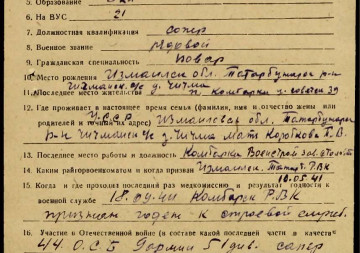 5. Образование
6. На ВУС 21
7. Должностная квалификация сапер
8. Военное звание рядовой
9. Гражданская специальность повар
10. Место рождения Измаилск. обл. Татарбунарск. р-н
11. Последнее место жительства г. Камбарка
12. Где проживает в настоящее время семья (фамилия, имя и отчество жены или
родителей и точный адрес) УССР Измаиловск. обл. Татарбунарск.
р-н с/с д. Чичма Мать Короткова
13. Последнее место работы и должность Камбарка Военстрой
14. Каким райгорвоенкоматом и когда призван Измаилск. Татарб. РВК
10.05.41
15. Когда и где проходил последний раз медкомиссию и результат годности к
военной службе 18.09.41 Камбарск. РВК
признан годен к строевой службе.
16. Участие в Отечественной войне (в составе какой последней части и в качестве
44 О.С.Б. 51 див. сапер